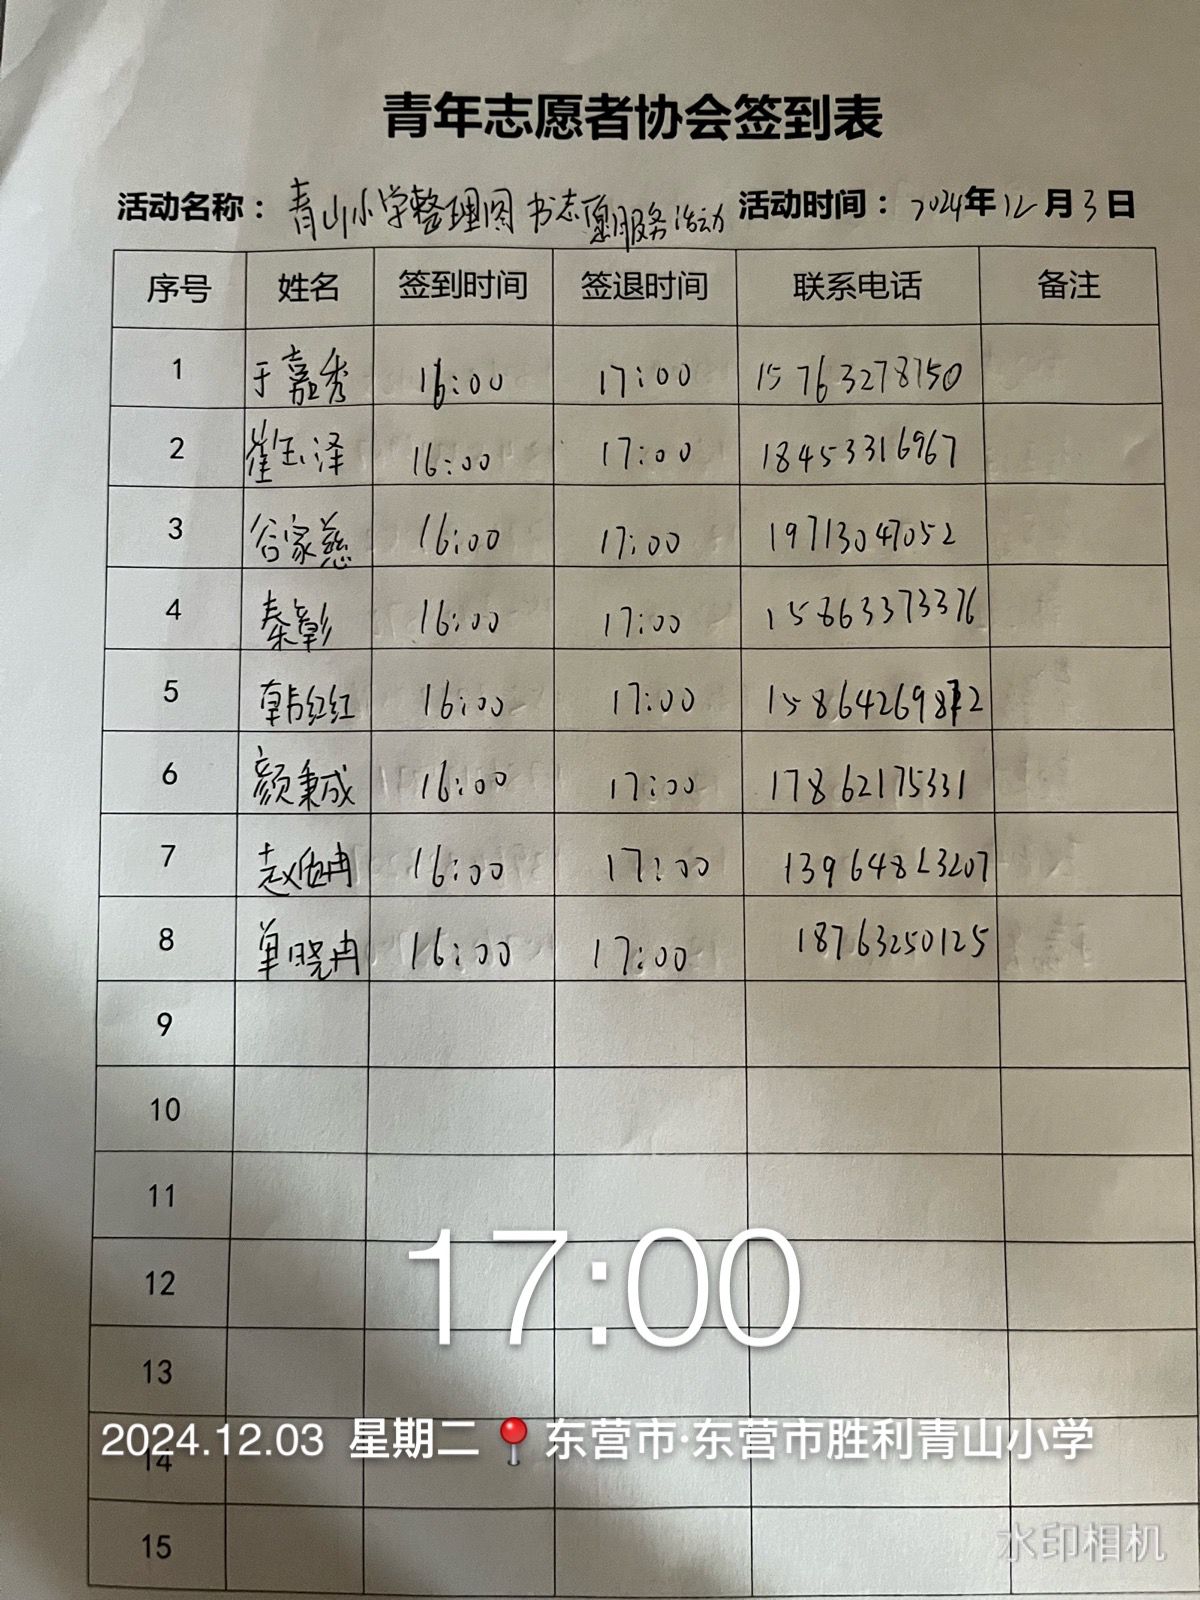 青年志愿者协会签到表
活动名称：青山小学整理图书志愿服务活动 活动时间：2024年12月3日
序号 姓名 签到时间 签退时间 联系电话 备注
1 于嘉秀 16:00 17:00 15763278150
2 崔玉泽 16:00 17:00 18453316967
3 谷家慈 16:00 17:00 19713047052
4 秦彰 16:00 17:00 15863373376
5 韩红红 16:00 17:00
6 颜秉成 16:00 17:00 17862175331
7 赵 冉 16:00 17:00
8 单晓冉 16:00 17:00 18763250125
9
10
11
12
17:00
13
2024.12.03 星期二 东营市·东营市胜利青山小学
14
15
水印相机